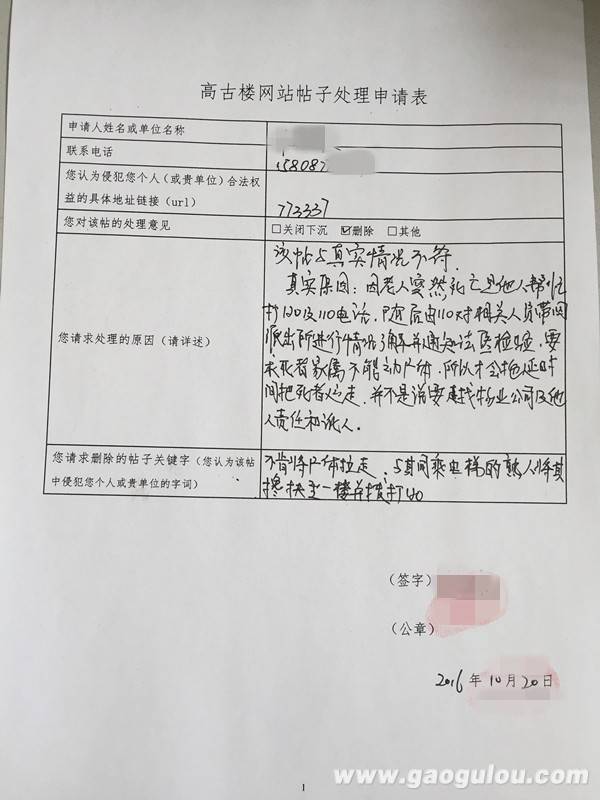 高古楼网站帖子处理申请表
申请人姓名或单位名称
联系电话
15808
您认为侵犯您个人（或贵单位）合法权
益的具体地址链接（url）
773337
您对该帖的处理意见
□关闭下沉 ☑删除 □其他
该帖与真实情况不符.
真实原因：因老人突然死亡是他人帮忙
打120及110电话，随后由110对相关人员带回
派出所进行情况了解并通知法医检验，要
求死者家属不能动尸体，所以才会拖延时
间把死者运走，并不是说要找物业公司及他
人责任和讹人.
您请求处理的原因（请详述）
您请求删除的帖子关键字（您认为该帖
中侵犯您个人或贵单位的字词）
不肯将尸体拉走、与其同乘电梯的熟人将其
搀扶至一楼并拨打120
（签字）
（公章）
2016年10月20日
1
www.gaogulou.com